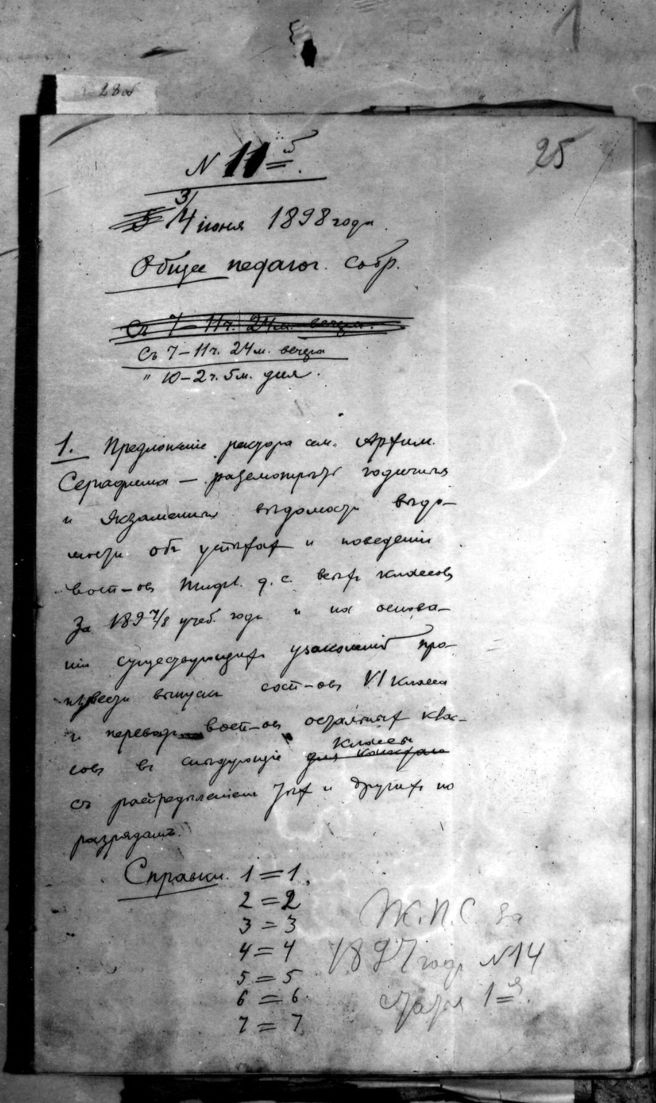 280
25
N 11 = б.
3/4 июня 1898 года.
Общее педагог. собр.
Съ 7–11 ч. 24 м. вечера.
Съ 7–11 ч. 24 м. вечера
" 10–2 ч. 5 м. дня.
1. Предложение ректора сем. Архим.
Серафима – разсмотрѣть годичныя
и экзаменныя вѣдомости
объ успѣхах и поведеніи
восп–овъ Тифл. д. с. всѣхъ классовъ
за 1897/8 учеб. годъ и на основа–
ніи существующихъ узаконеній про–
извести выпускъ восп–овъ VI класса
и переводъ восп–овъ остальныхъ клас–
совъ въ слѣдующіе классы
съ распредѣленіем тѣх и других по
разрядамъ.
Справки. 1 = 1.
2 = 2
3 = 3
4 = 4
5 = 5
6 = 6.
7 = 7
Ж.П.С. за
1897 годъ N 14
статья 1=я.